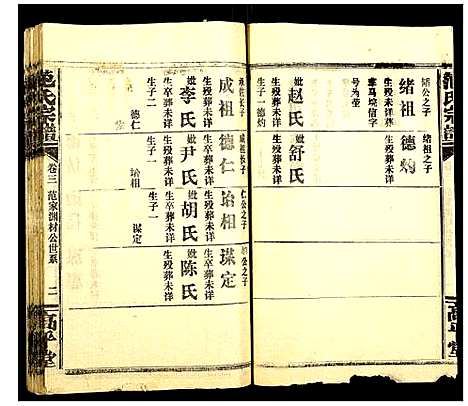 范氏宗譜
韬公之子
绪祖
生殁葬未详
葬马垸信字
号为茔
妣赵氏
生殁葬未详
生子一德灼
绪祖之子
德灼
妣舒氏
生殁葬未详
成祖
生殁葬未详
妣李氏
生卒葬未详
生子二
德仁
成祖长子
德仁
生殁葬未详
妣尹氏
生殁葬未详
生子一
治相
仁公之子
治相
生卒葬未详
妣胡氏
生卒葬未详
生子一
谋定
相公之子
谋定
生卒葬未详
妣陈氏
生殁葬未详
范氏宗譜
卷三
范家渊材公世系
二
高平堂